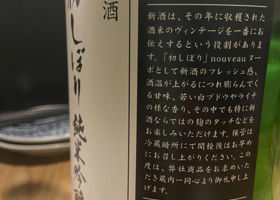 酒
初しぼり 純米吟醸
新酒は、その年に収穫された
酒米のヴィンテージを一番にお
伝えするという役割がありま
す。「初しぼり」nouveau ヌー
ボとして新酒のフレッシュ感、
酒温が上がるにつれ膨らんでく
る甘味、若い白ブドウやライチ
の様な香り、その中でも特に新
酒ならではの麹のタッチなどを
お楽しみいただけます。保管は
冷蔵暗所にて開栓後はお早め
にお召し上がりください。この
度は、弊社商品をお求めいた
だき蔵内一同心より御礼申し上
げます。